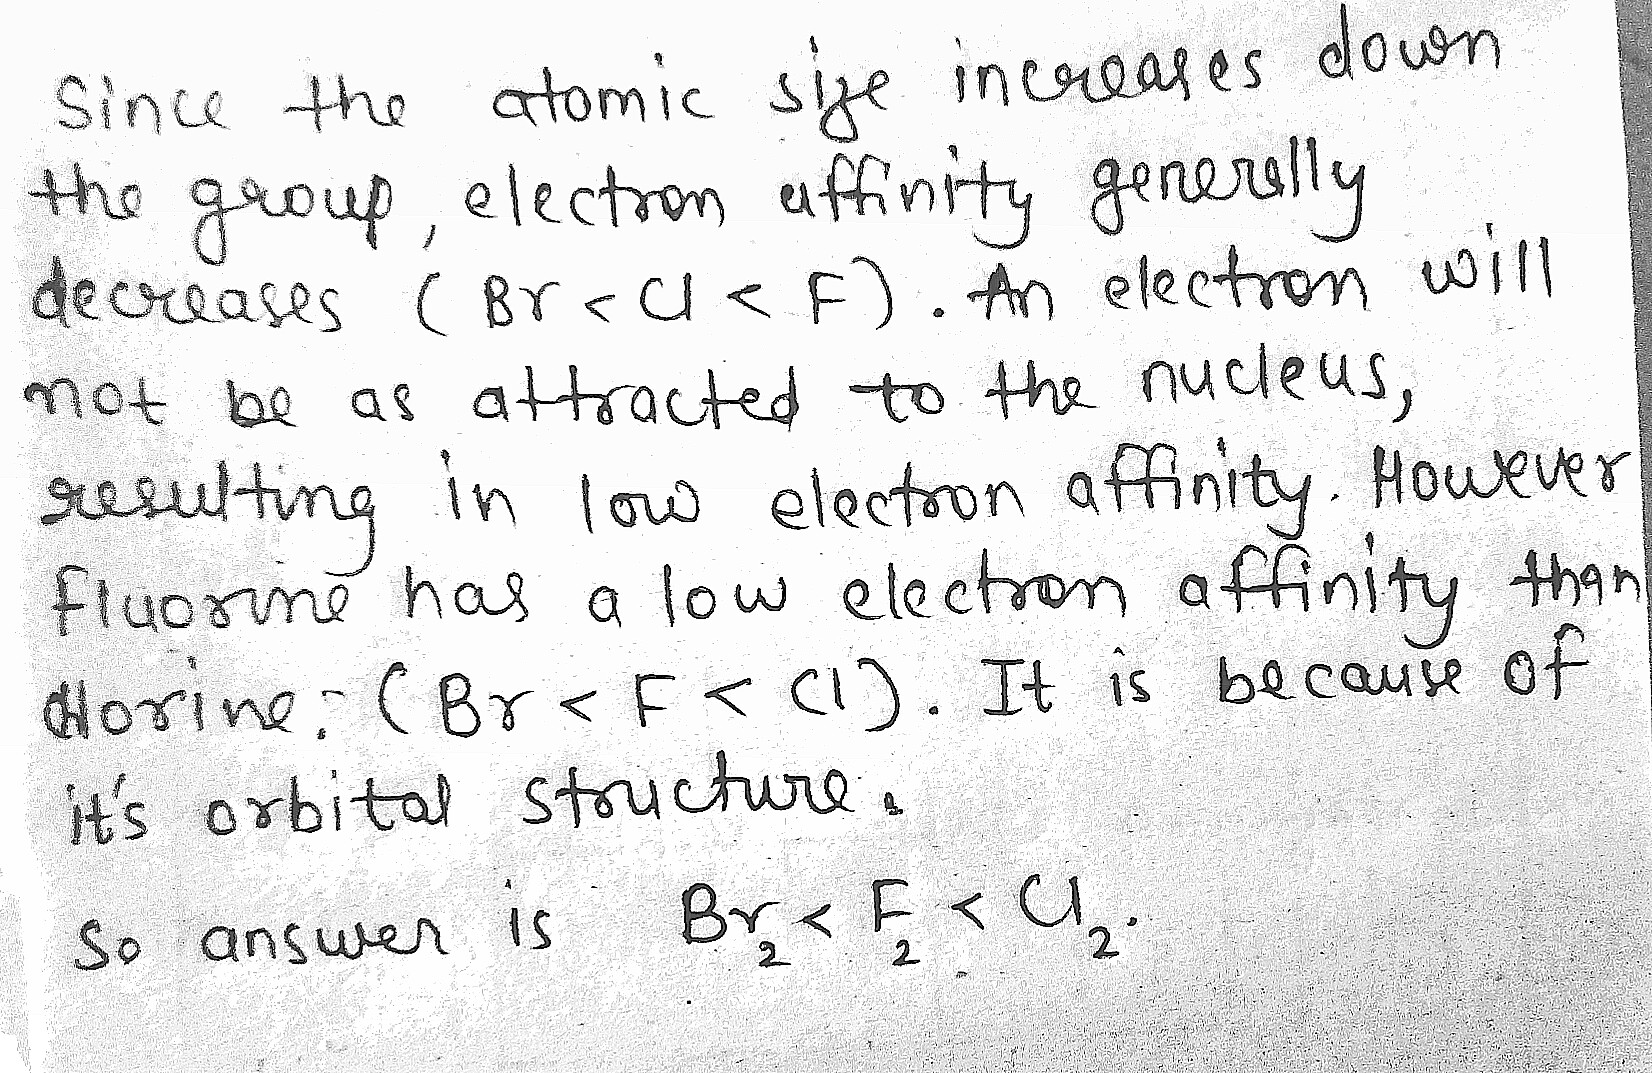 Since the atomic size increases down
the group, electron affinity generally
decreases (Br < Cl < F). An electron will
not be as attracted to the nucleus,
resulting in low electron affinity. However
fluorine has a low electron affinity than
chlorine: (Br < F < Cl). It is because of
it's orbital structure.
So answer is Br₂ < F₂ < Cl₂.